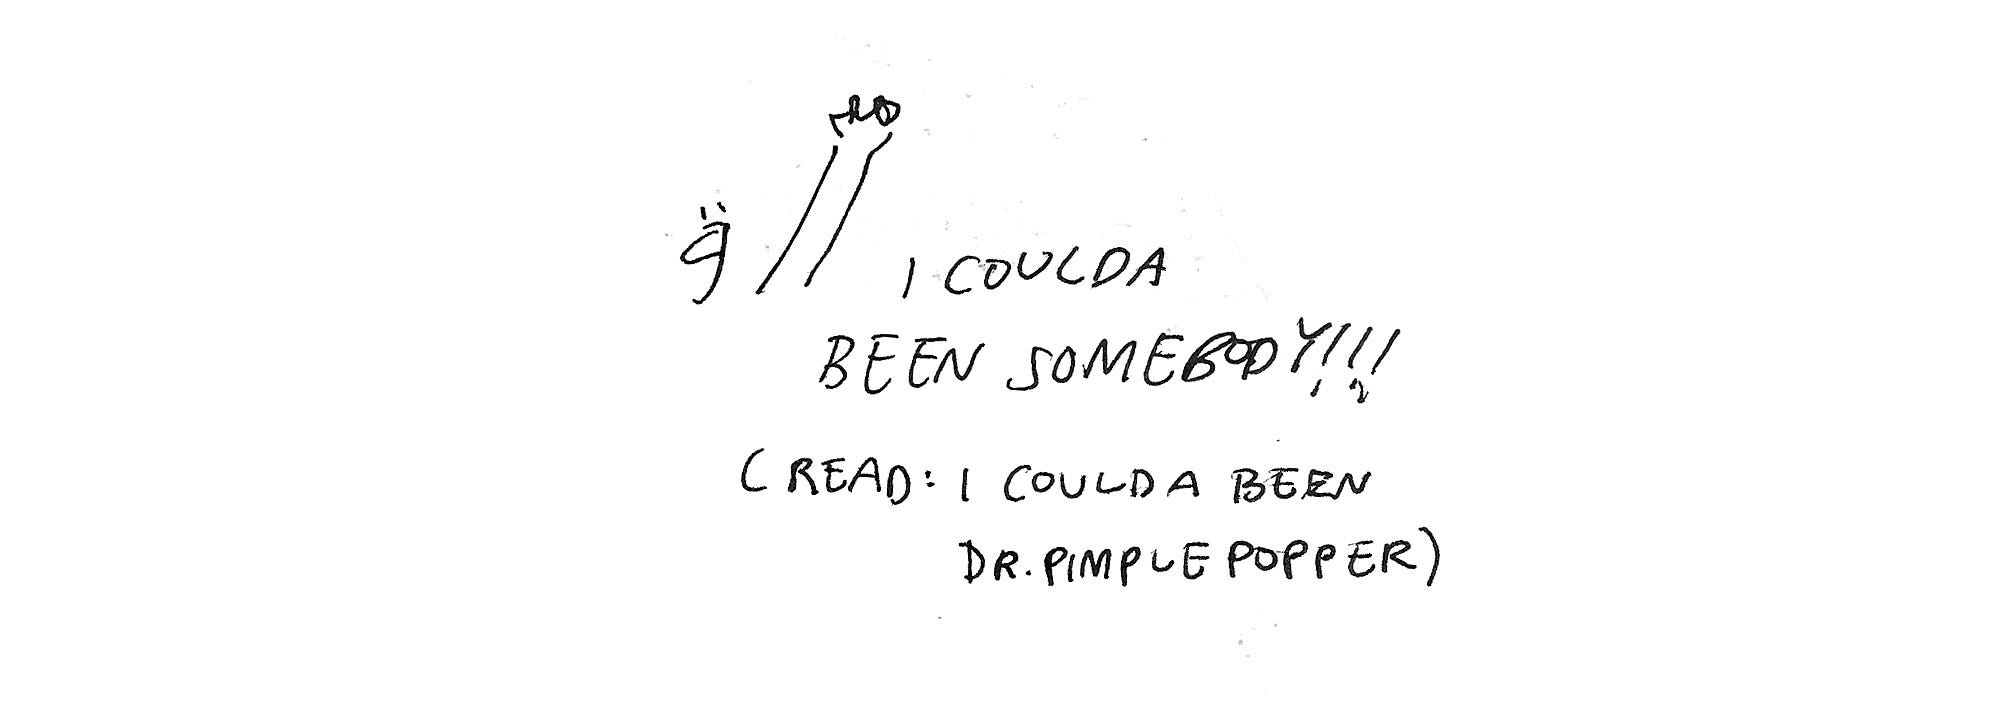 I COULDA
BEEN SOMEBODY!!!
(READ: I COULDA BEEN
DR. PIMPLE POPPER)